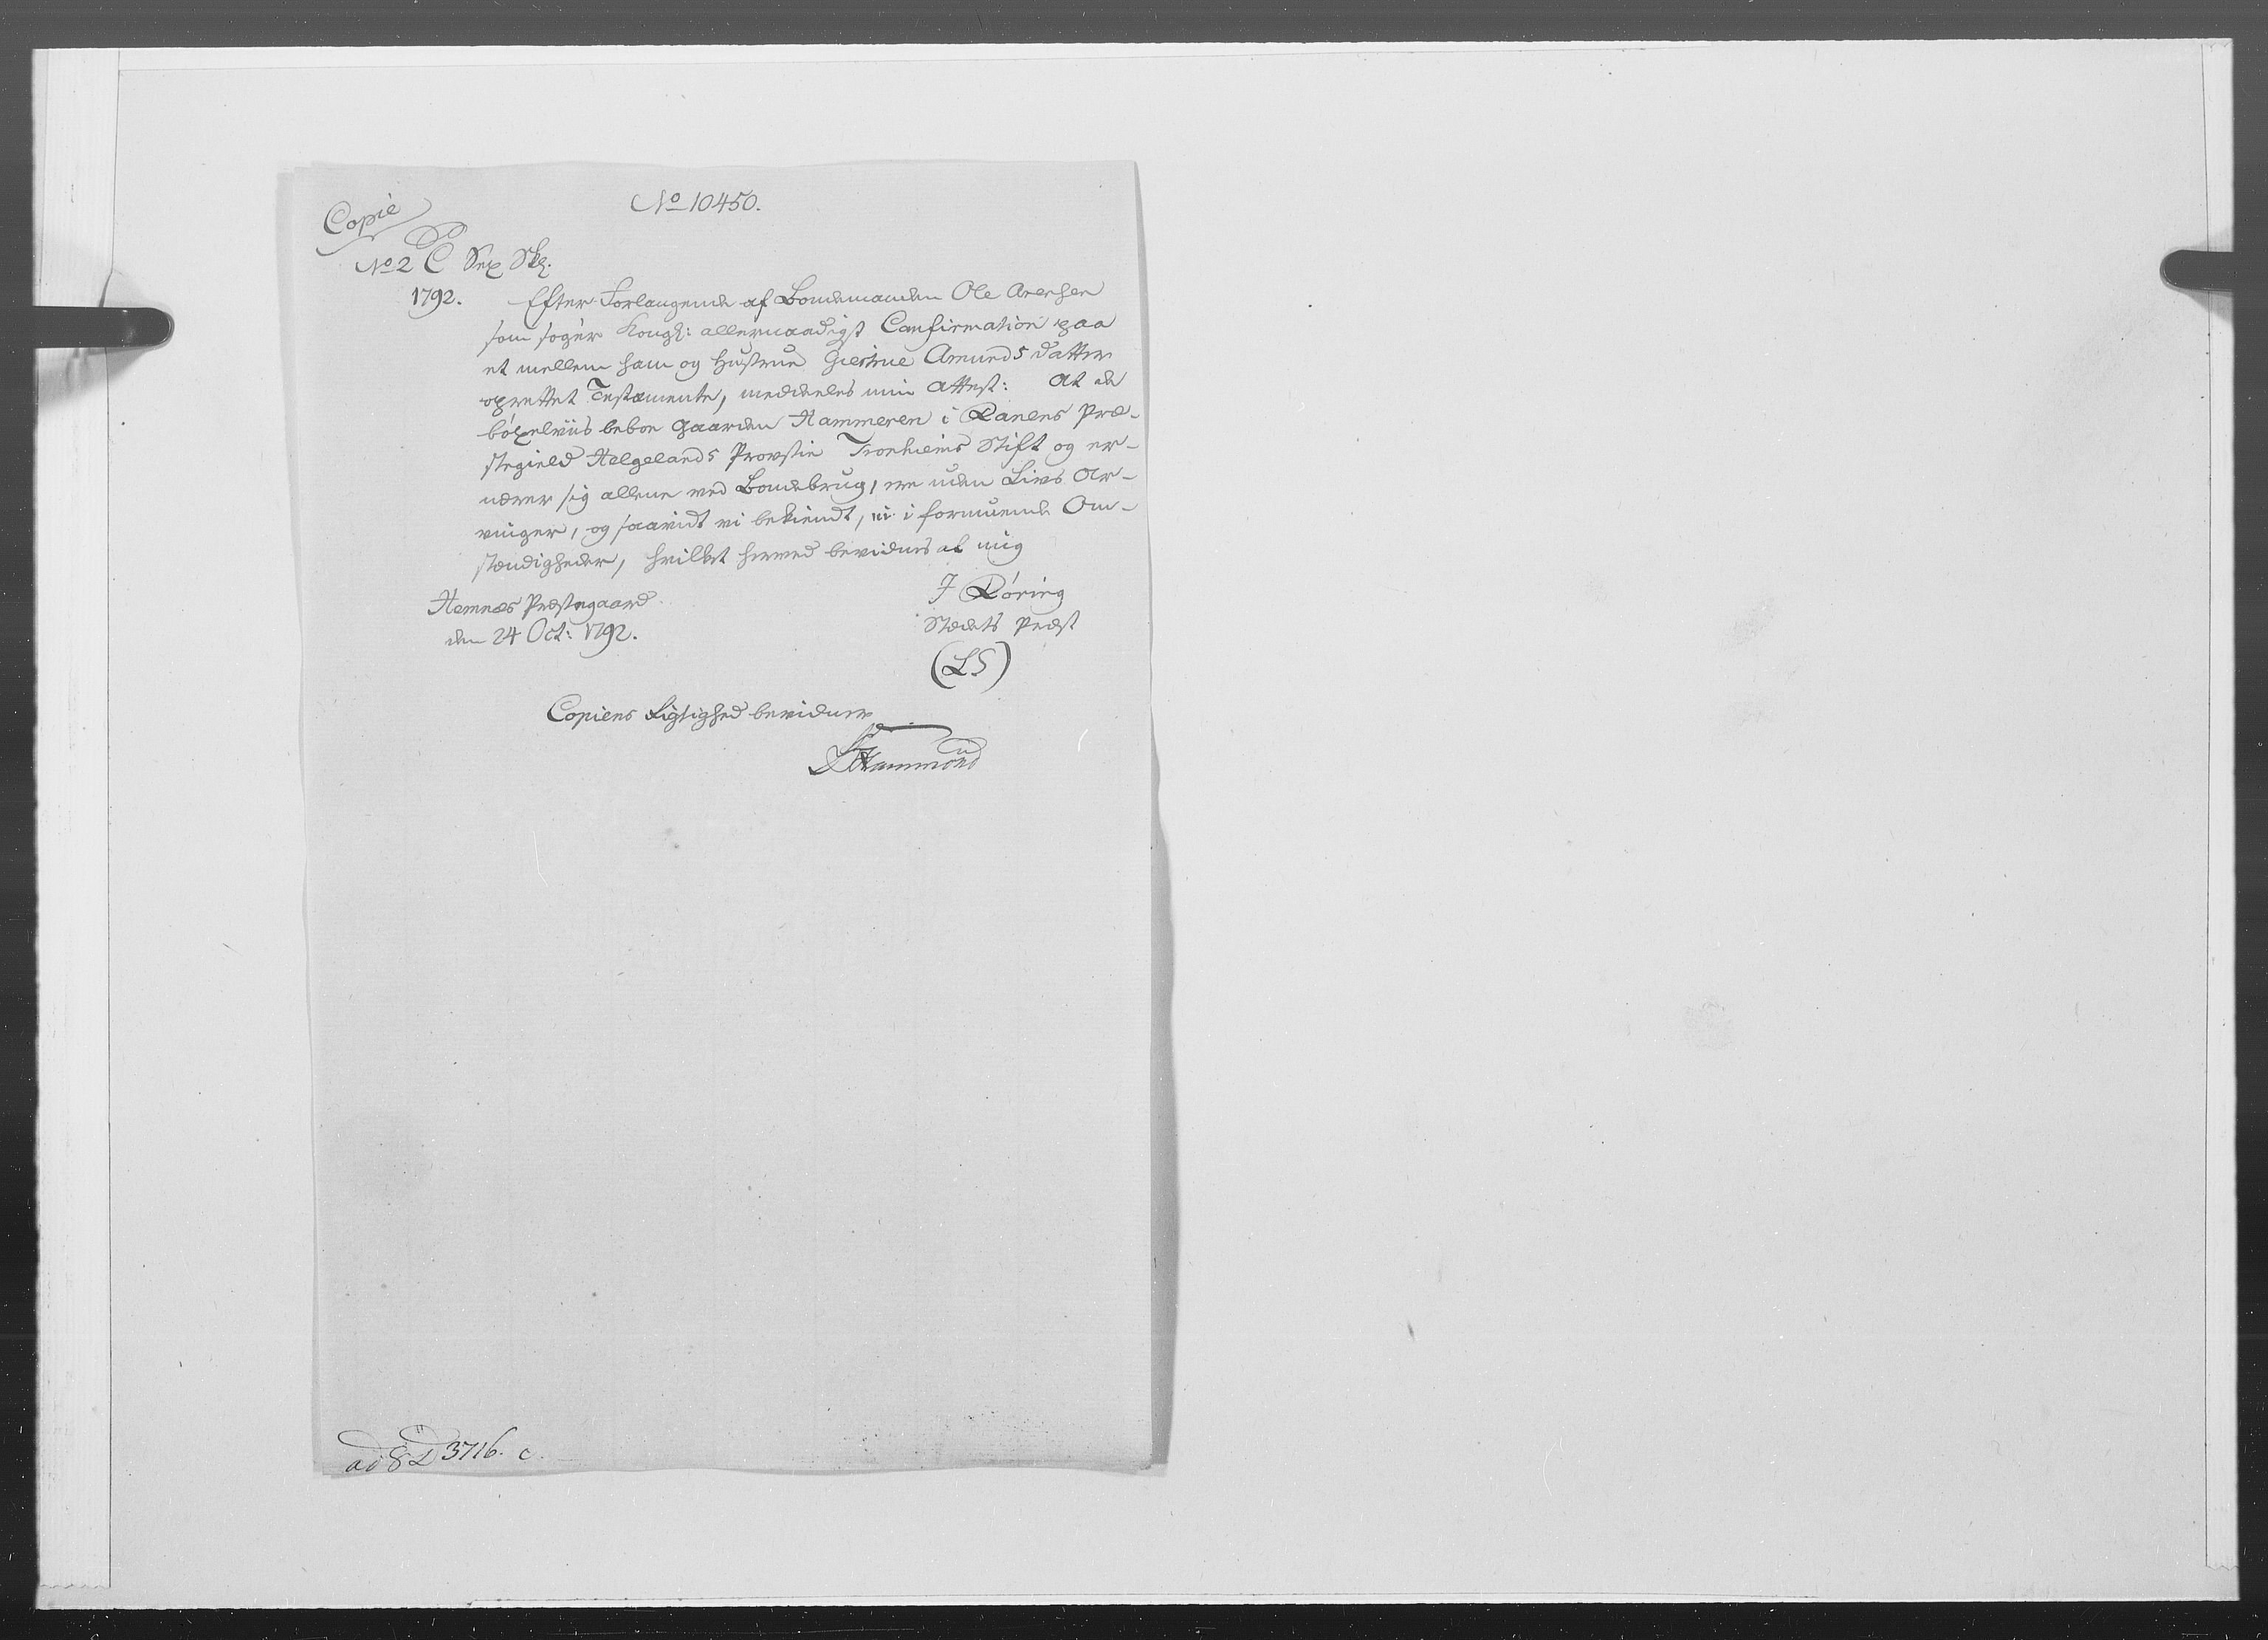 Copie
No 10450.
No 2 C Sex Skl.
1792.
Efter Forlangende af Bondemanden Ole Arensen
som søger Kongl: allernaadigst Confirmation paa
et mellem ham og Hustrue Giertrue Amunds datter
oprettet Testamente, meddeeles min Attest: At de
bøxelviis beboe Gaarden Hammeren i Ranens Præ-
stegield Helgelands Provstie Tronhiems Stift og er-
nærer sig allene ved Bondebrug, ere uden Livs Ar-
vinger, og saavidt vi bekiendt, ei i formuende Om-
stændigheder, hvilket herved bevidnes af mig
Hemnes Præstegaard
den 24 Oct: 1792.
J Røring
Stedets Præst
(LS)
Copiens Rigtighed bevidner
Hammond
ad 8 D 3716. c.